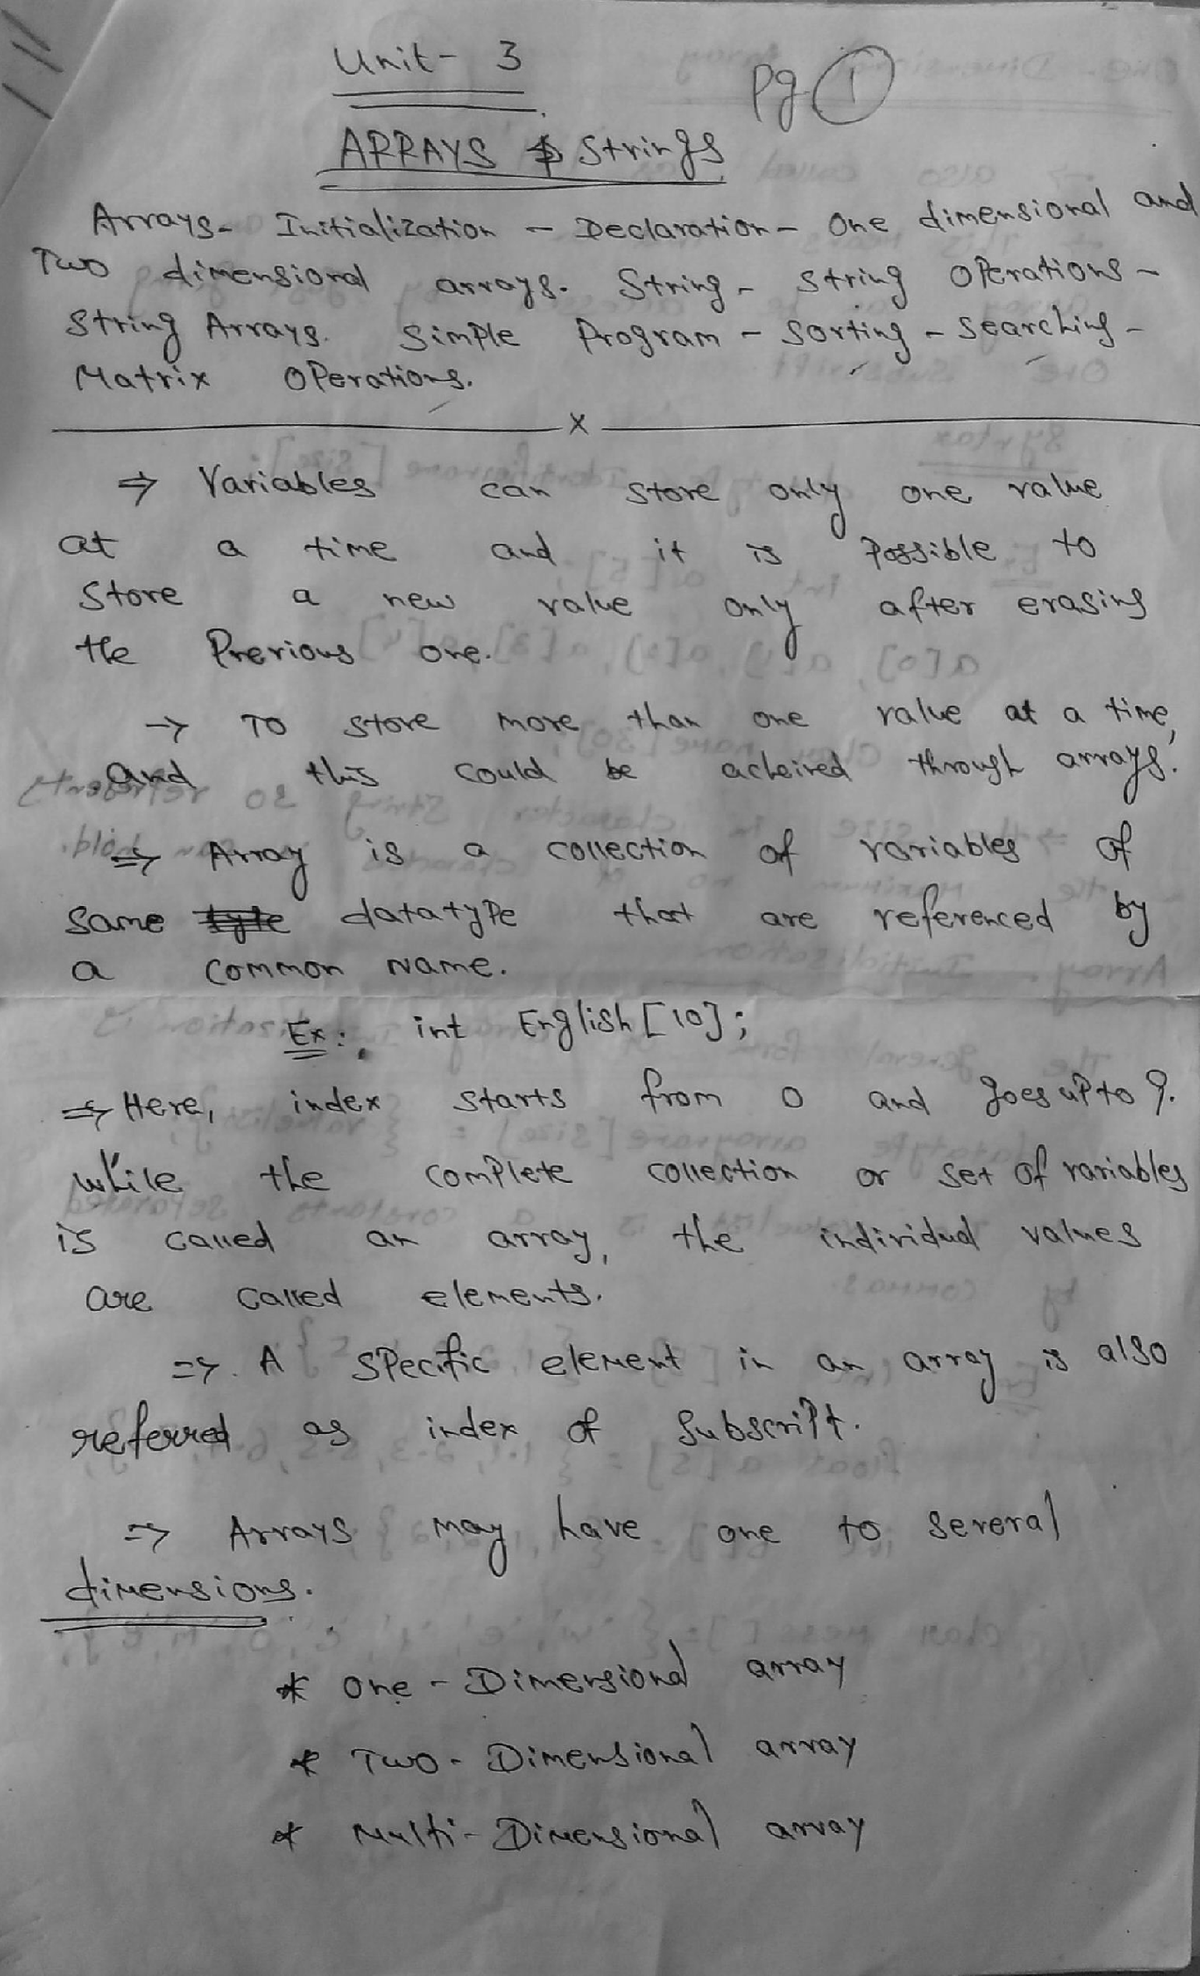 Unit- 3
Pg 1
ARRAYS & Strings
Arrays- Initialization - Declaration - One dimensional and
Two dimensional arrays. String - String Operations -
String Arrays. Simple Program - Sorting - Searching -
Matrix Operations.
x
⇒ Variables can store only one value
at a time and it is Possible to
Store a new value only after erasing
the Previous one.
→ To store more than one value at a time,
and this could be acheived through arrays.
⇒ Array is a collection of variables of
same datatype that are referenced by
a common name.
Ex: int English[10];
⇒ Here, index starts from 0 and goes upto 9.
while the complete collection or set of variables
is called an array, the individual values
are called elements.
⇒ A specific element in an array is also
referred as index of Subscript.
⇒ Arrays may have one to several
dimensions.
* One - Dimensional array
* Two - Dimensional array
* Multi - Dimensional array